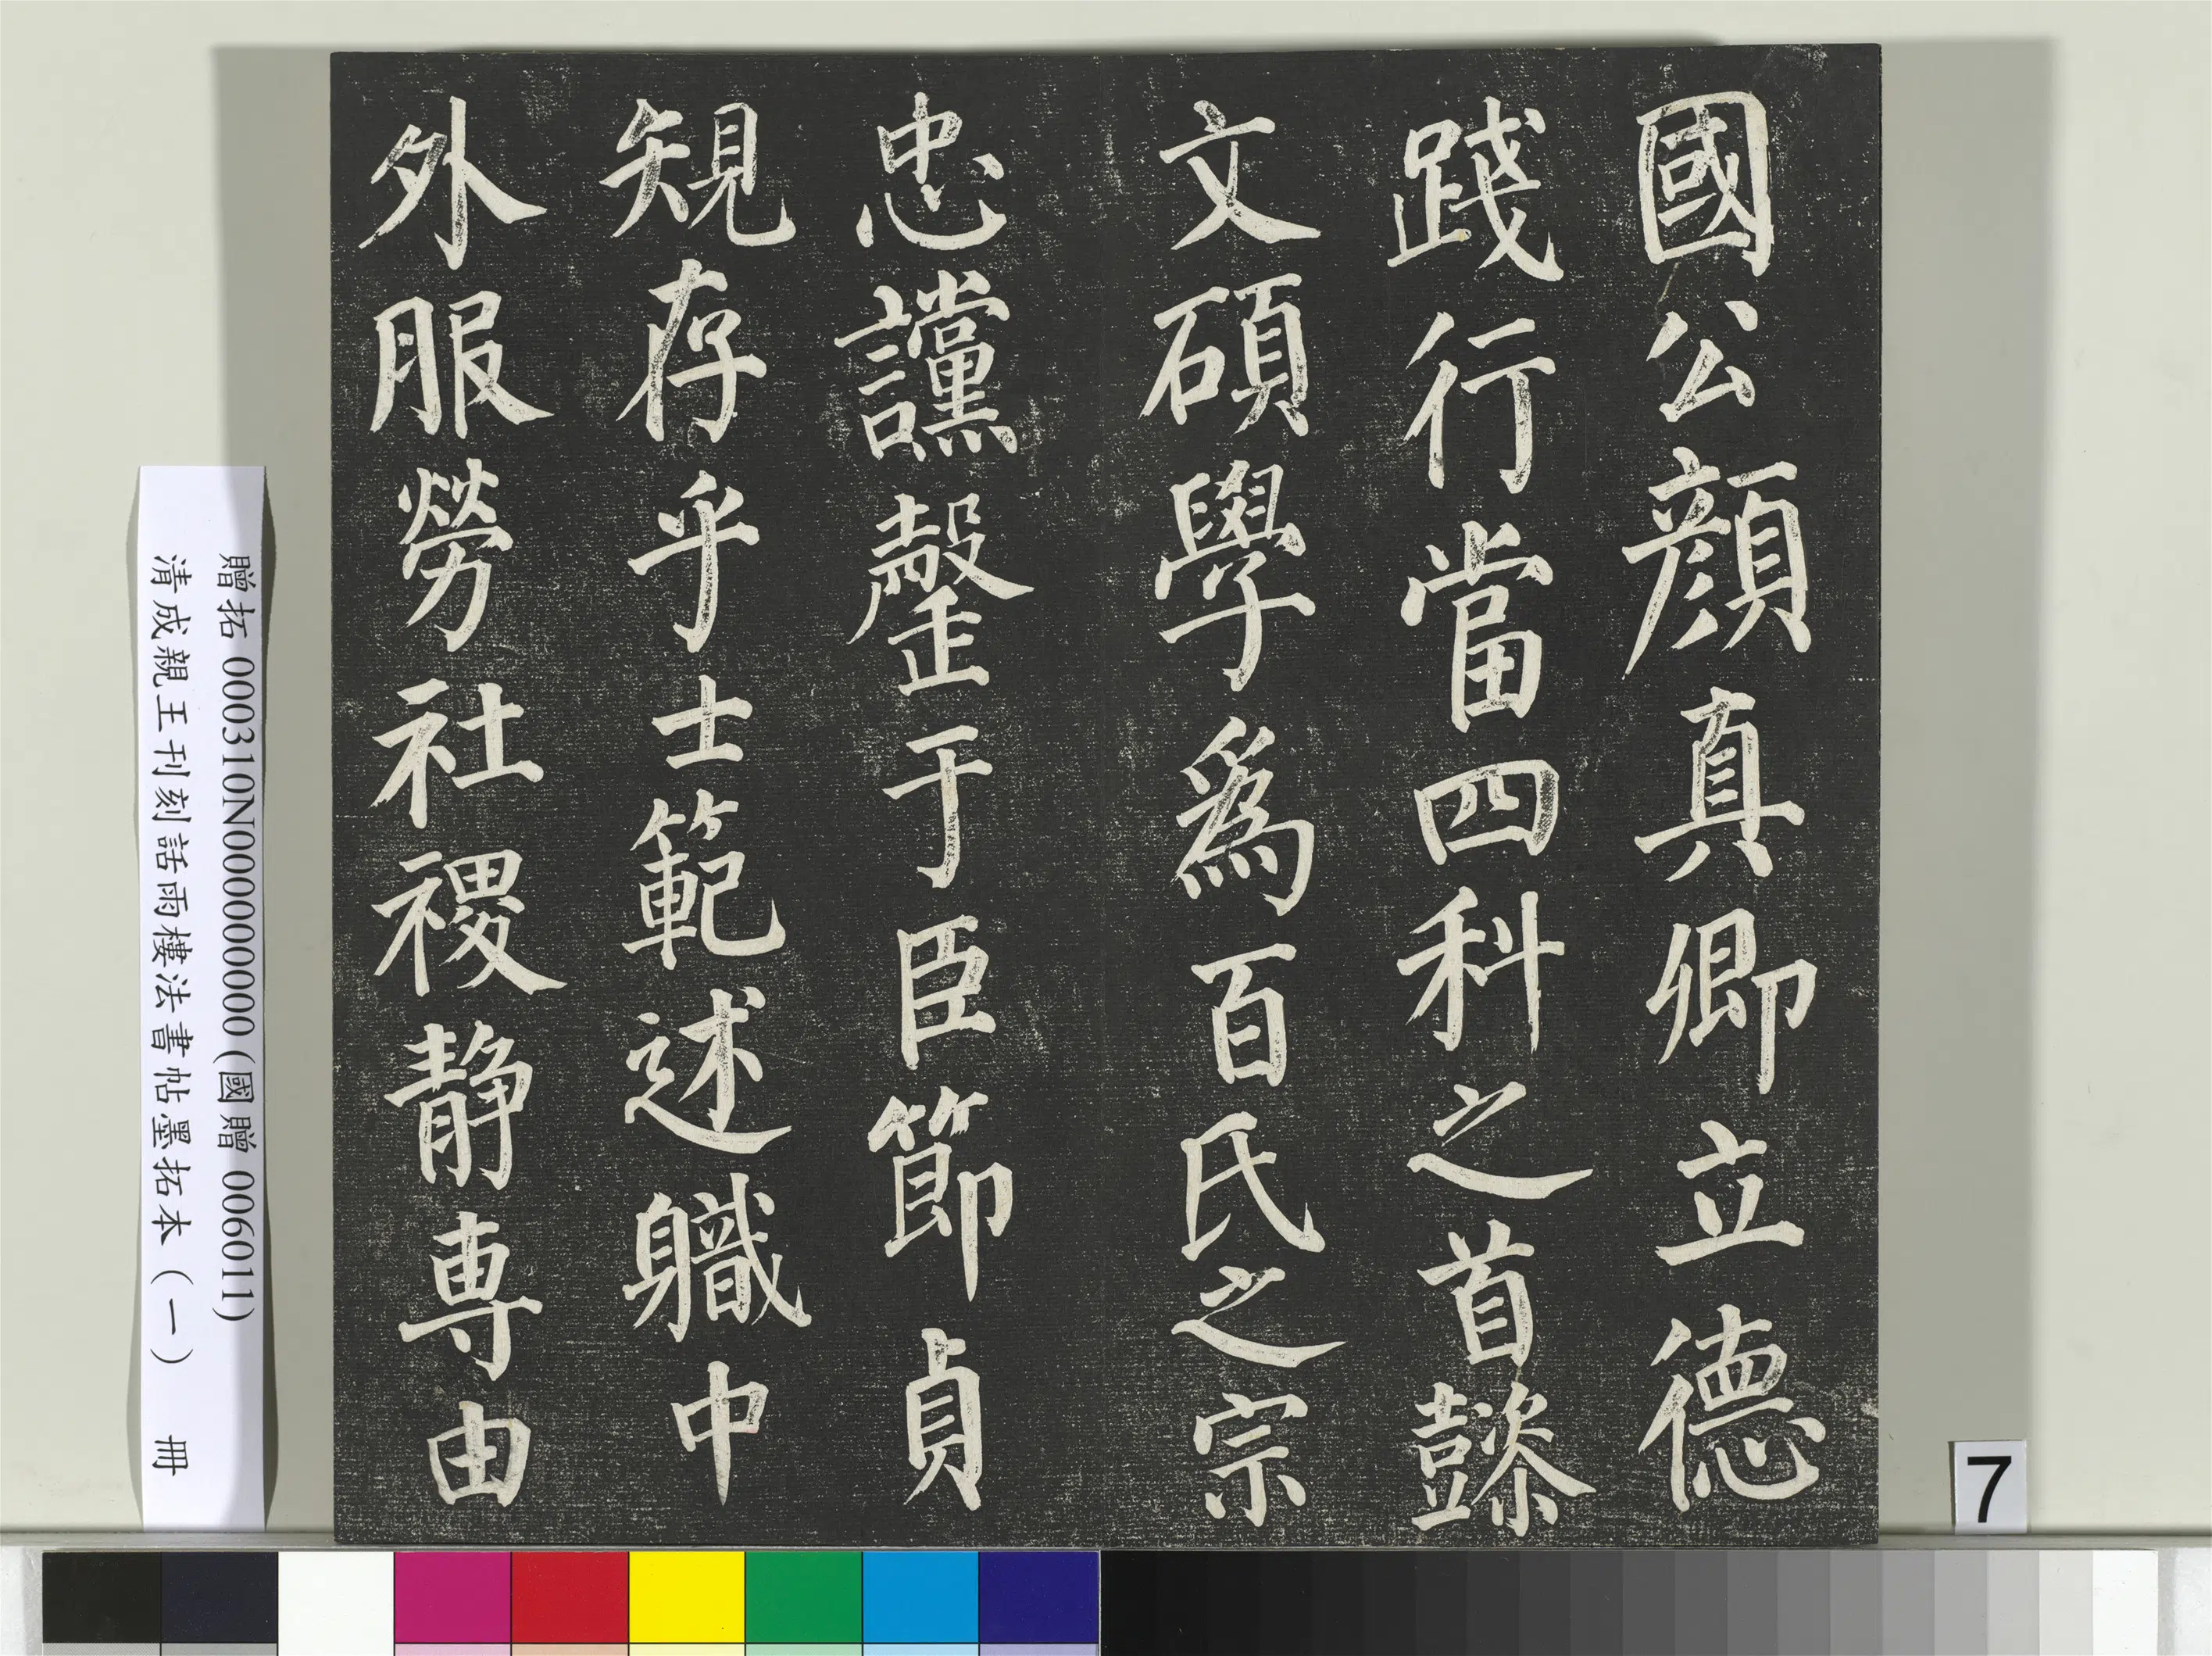 國公顔真卿立德
踐行當四科之首懿
文碩學為百氏之宗
忠讜罄于臣節貞
䂓存乎士範述軄中
外服勞社禝静専由
贈拓 000310N000000000 (國贈 006011)
清成親王刊刻話雨樓法書帖墨拓本(一) 冊
7